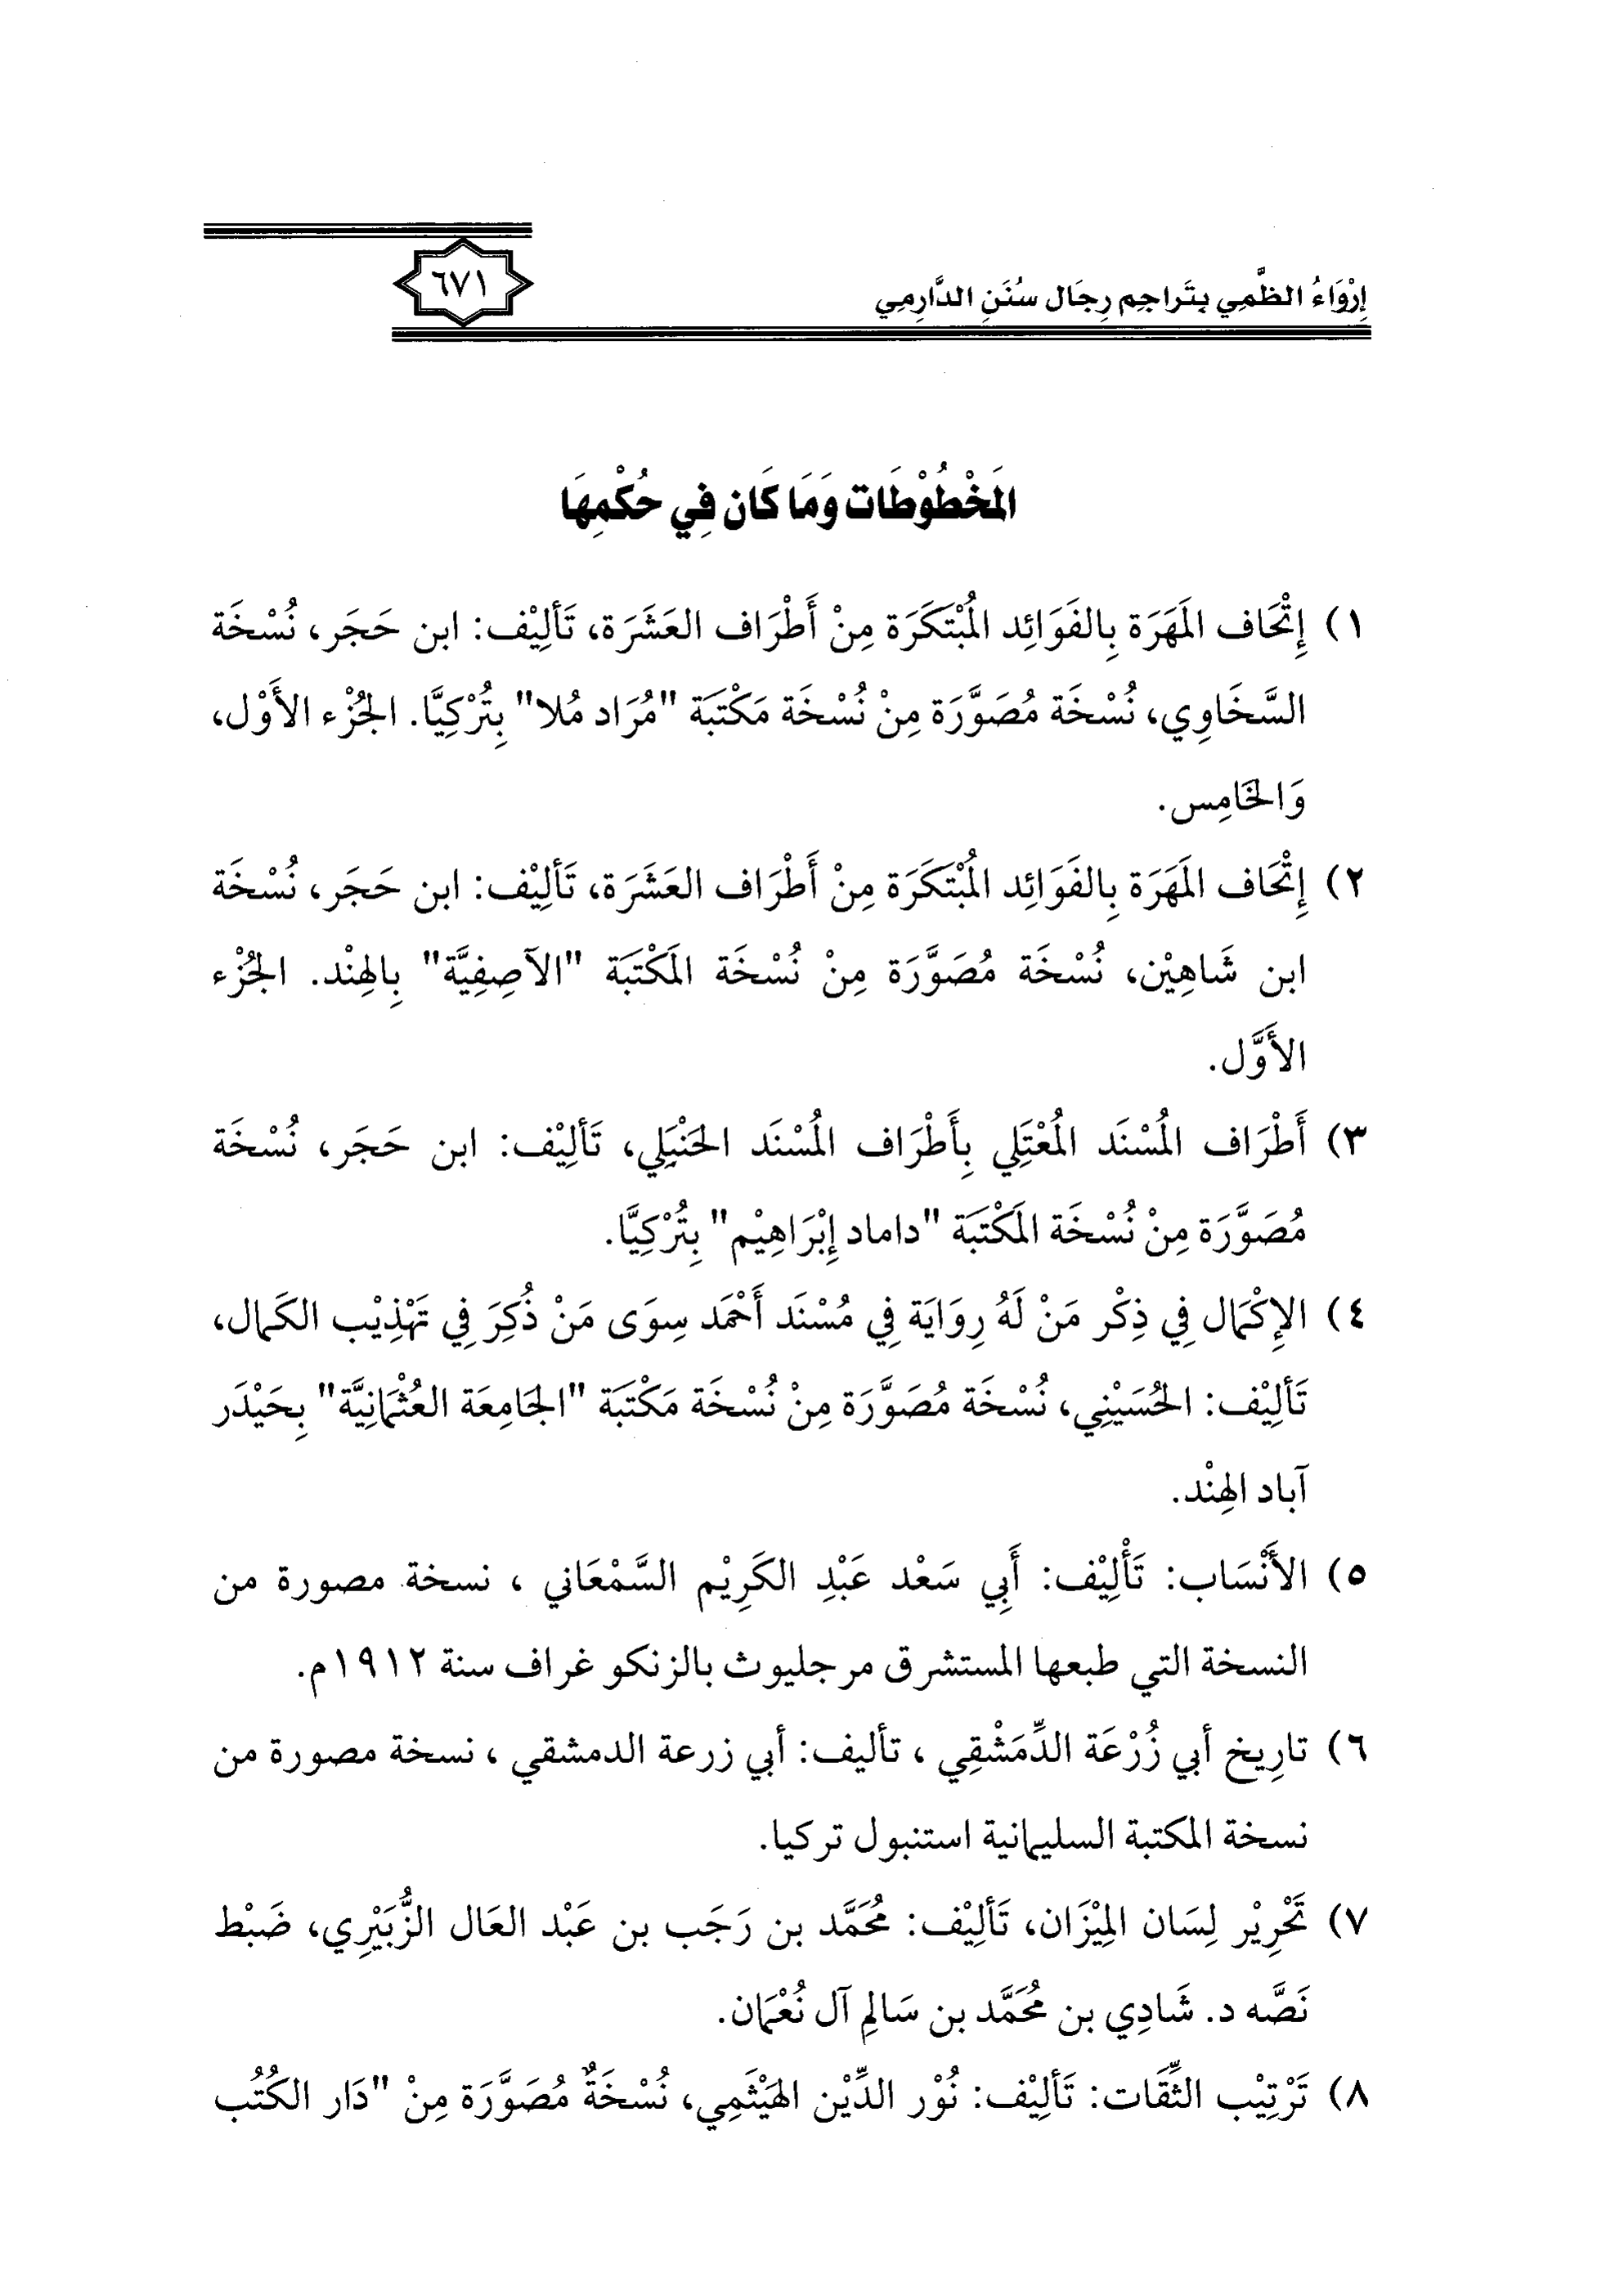 إِرْوَاءُ الظَّمِي بِتَراجِم رِجَال سُنَنِ الدَّارِمِي
٦٧١
المَخْطُوْطَات وَمَا كَان فِي حُكْمِهَا
١) إِتْحَاف المَهَرَة بِالفَوَائِد المُبْتَكَرَة مِنْ أَطْرَاف العَشَرَة، تَأليْف: ابن حَجَر، نُسْخَة
السَّخَاوِي، نُسْخَة مُصَوَّرَة مِنْ نُسْخَة مَكْتَبَة "مُرَاد مُلا" بِتُرْكِيَّا. الجُزْء الأَوْل،
وَالخَامِس.
٢) إِتْحَاف المَهَرَة بِالفَوَائِد المُبْتَكَرَة مِنْ أَطْرَاف العَشَرَة، تَأليْف: ابن حَجَر، نُسْخَة
ابن شَاهِيْن، نُسْخَة مُصَوَّرَة مِنْ نُسْخَة المَكْتَبَة "الآصِفِيَّة" بِالهِنْد. الجُزْء
الأَوَّل.
٣) أَطْرَاف المُسْنَد المُعْتَلِي بِأَطْرَاف المُسْنَد الحَنْبَلِي، تَألِيْف: ابن حَجَر، نُسْخَة
مُصَوَّرَة مِنْ نُسْخَة المَكْتَبَة "داماد إِبْرَاهِيْم" بِتُرْكِيَّا.
٤) الإِكْمَال فِي ذِكْر مَنْ لَهُ رِوَايَة فِي مُسْنَد أَحْمَد سِوَى مَنْ ذُكِرَ فِي تَهْذِيْب الكَمال،
تَألِيْف: الحُسَيْنِي، نُسْخَة مُصَوَّرَة مِنْ نُسْخَة مَكْتَبَة "الجَامِعَة العُثْمَانِيَّة" بِحَيْدَر
آباد الهِنْد.
٥) الأَنْسَاب: تَأْلِيْف: أَبِي سَعْد عَبْدِ الكَرِيْم السَّمْعَاني ، نسخة مصورة من
النسخة التي طبعها المستشرق مرجليوث بالزنكو غراف سنة ١٩١٢م.
٦) تارِيخ أبي زُرْعَة الدِّمَشْقِي ، تأليف: أبي زرعة الدمشقي ، نسخة مصورة من
نسخة المكتبة السليمانية استنبول تركيا.
٧) تَحْرِيْر لِسَان المِيْزَان، تَألِيْف: مُحَمَّد بن رَجَب بن عَبْد العَال الزُّبَيْرِي، ضَبْط
نَصَّه د. شَادِي بن مُحَمَّد بن سَالِم آل نُعْمَان.
٨) تَرْتِيْب الثِّقَات: تَألِيْف: نُوْر الدِّيْن الهَيْثَمِي، نُسْخَةٌ مُصَوَّرَة مِنْ "دَار الكُتُب